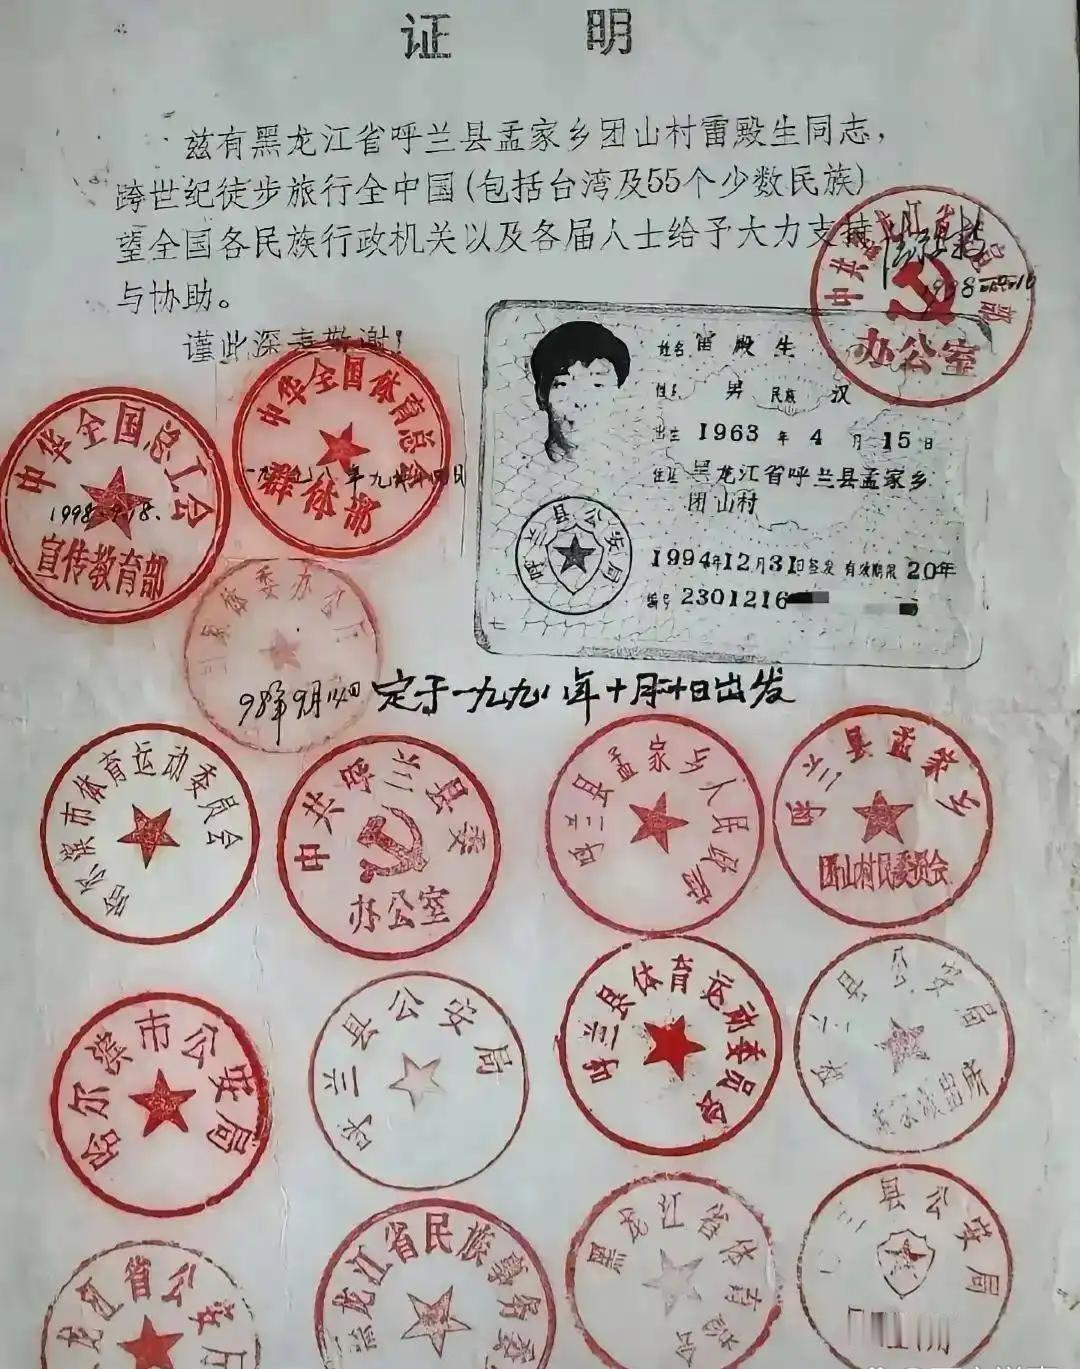 证 明
兹有黑龙江省呼兰县孟家乡团山村雷殿生同志，
跨世纪徒步旅行全中国(包括台湾及55个少数民族)
望全国各民族行政机关以及各届人士给予大力支持
与协助。
谨此深表敬谢!
中共黑龙江省
办公室
1998
姓名 雷殿生
性别 男 民族 汉
出生 1963 年 4 月 15 日
住址 黑龙江省呼兰县孟家乡
团山村
1994年12月31日签发 有效期限 20年
编号 2301216
呼兰县公安局
中华全国总工会
1998.9.18.
宣传教育部
中华全国体育总
群体部
国家体委办公厅
98年9月14日
定于一九九八年十月二十日出发
哈尔滨市体育运动委员会
中共呼兰县委
办公室
呼兰县孟家乡人民政府
呼兰县孟家乡
团山村民委员会
哈尔滨市公安局
呼兰县公安局
呼兰县体育运动委员会
县公安局
孟家派出所
黑龙江省公安厅
黑龙江省民族事务委
黑龙江省体育
县公安局